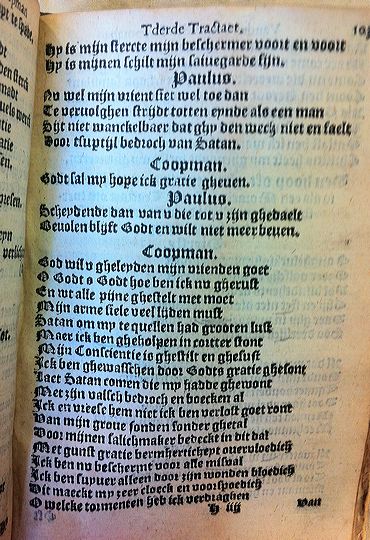 Tderde Tractaet.
Hy is mijn stercte mijn beschermer voort en voort
Hy is mijnen schilt mijn sauvegarde fijn.
Paulus.
Nu wel mijn vrient siet wel toe dan
Te vervolghen strijdt totten eynde als een man
Sijt niet wanckelbaer dat ghy den wech niet en faelt
Door tsuptijl bedroch van Satan.
Coopman.
Godt sal my hope ick gratie gheven.
Paulus.
Scheydende dan van v die tot v zijn ghedaelt
Bevolen blijft Godt en wilt niet meer beven.
Coopman.
God wil v gheleyden mijn vrienden goet
O Godt o Godt hoe ben ick nv gherust
En wt alle pijne ghestelt met moet
Mijn arme siele veel lijden must
Satan om my te quellen had grooten lust
Maer ick ben gheholpen in corter stont
Mijn Conscientie is ghestilt en ghesust
Ick ben ghewasschen door Godts gratie ghesont
Laet Satan comen die my hadde ghewont
Met zijn valsch bedroch en boecken al
Ick en vreese hem niet ick ben verlost goet ront
Van mijn grove sonden sonder ghetal
Door mijnen salichmaker bedeckt in dit dal
Met gunst gratie bermherticheyt overvloedich
Ick ben nv beschermt voor alle misval
Ick ben suyver alleen door zijn wonden bloedich
Dit maeckt my zeer cloeck en voorspoedich
O welcke tormenten heb ick verdraghen
H iij Van